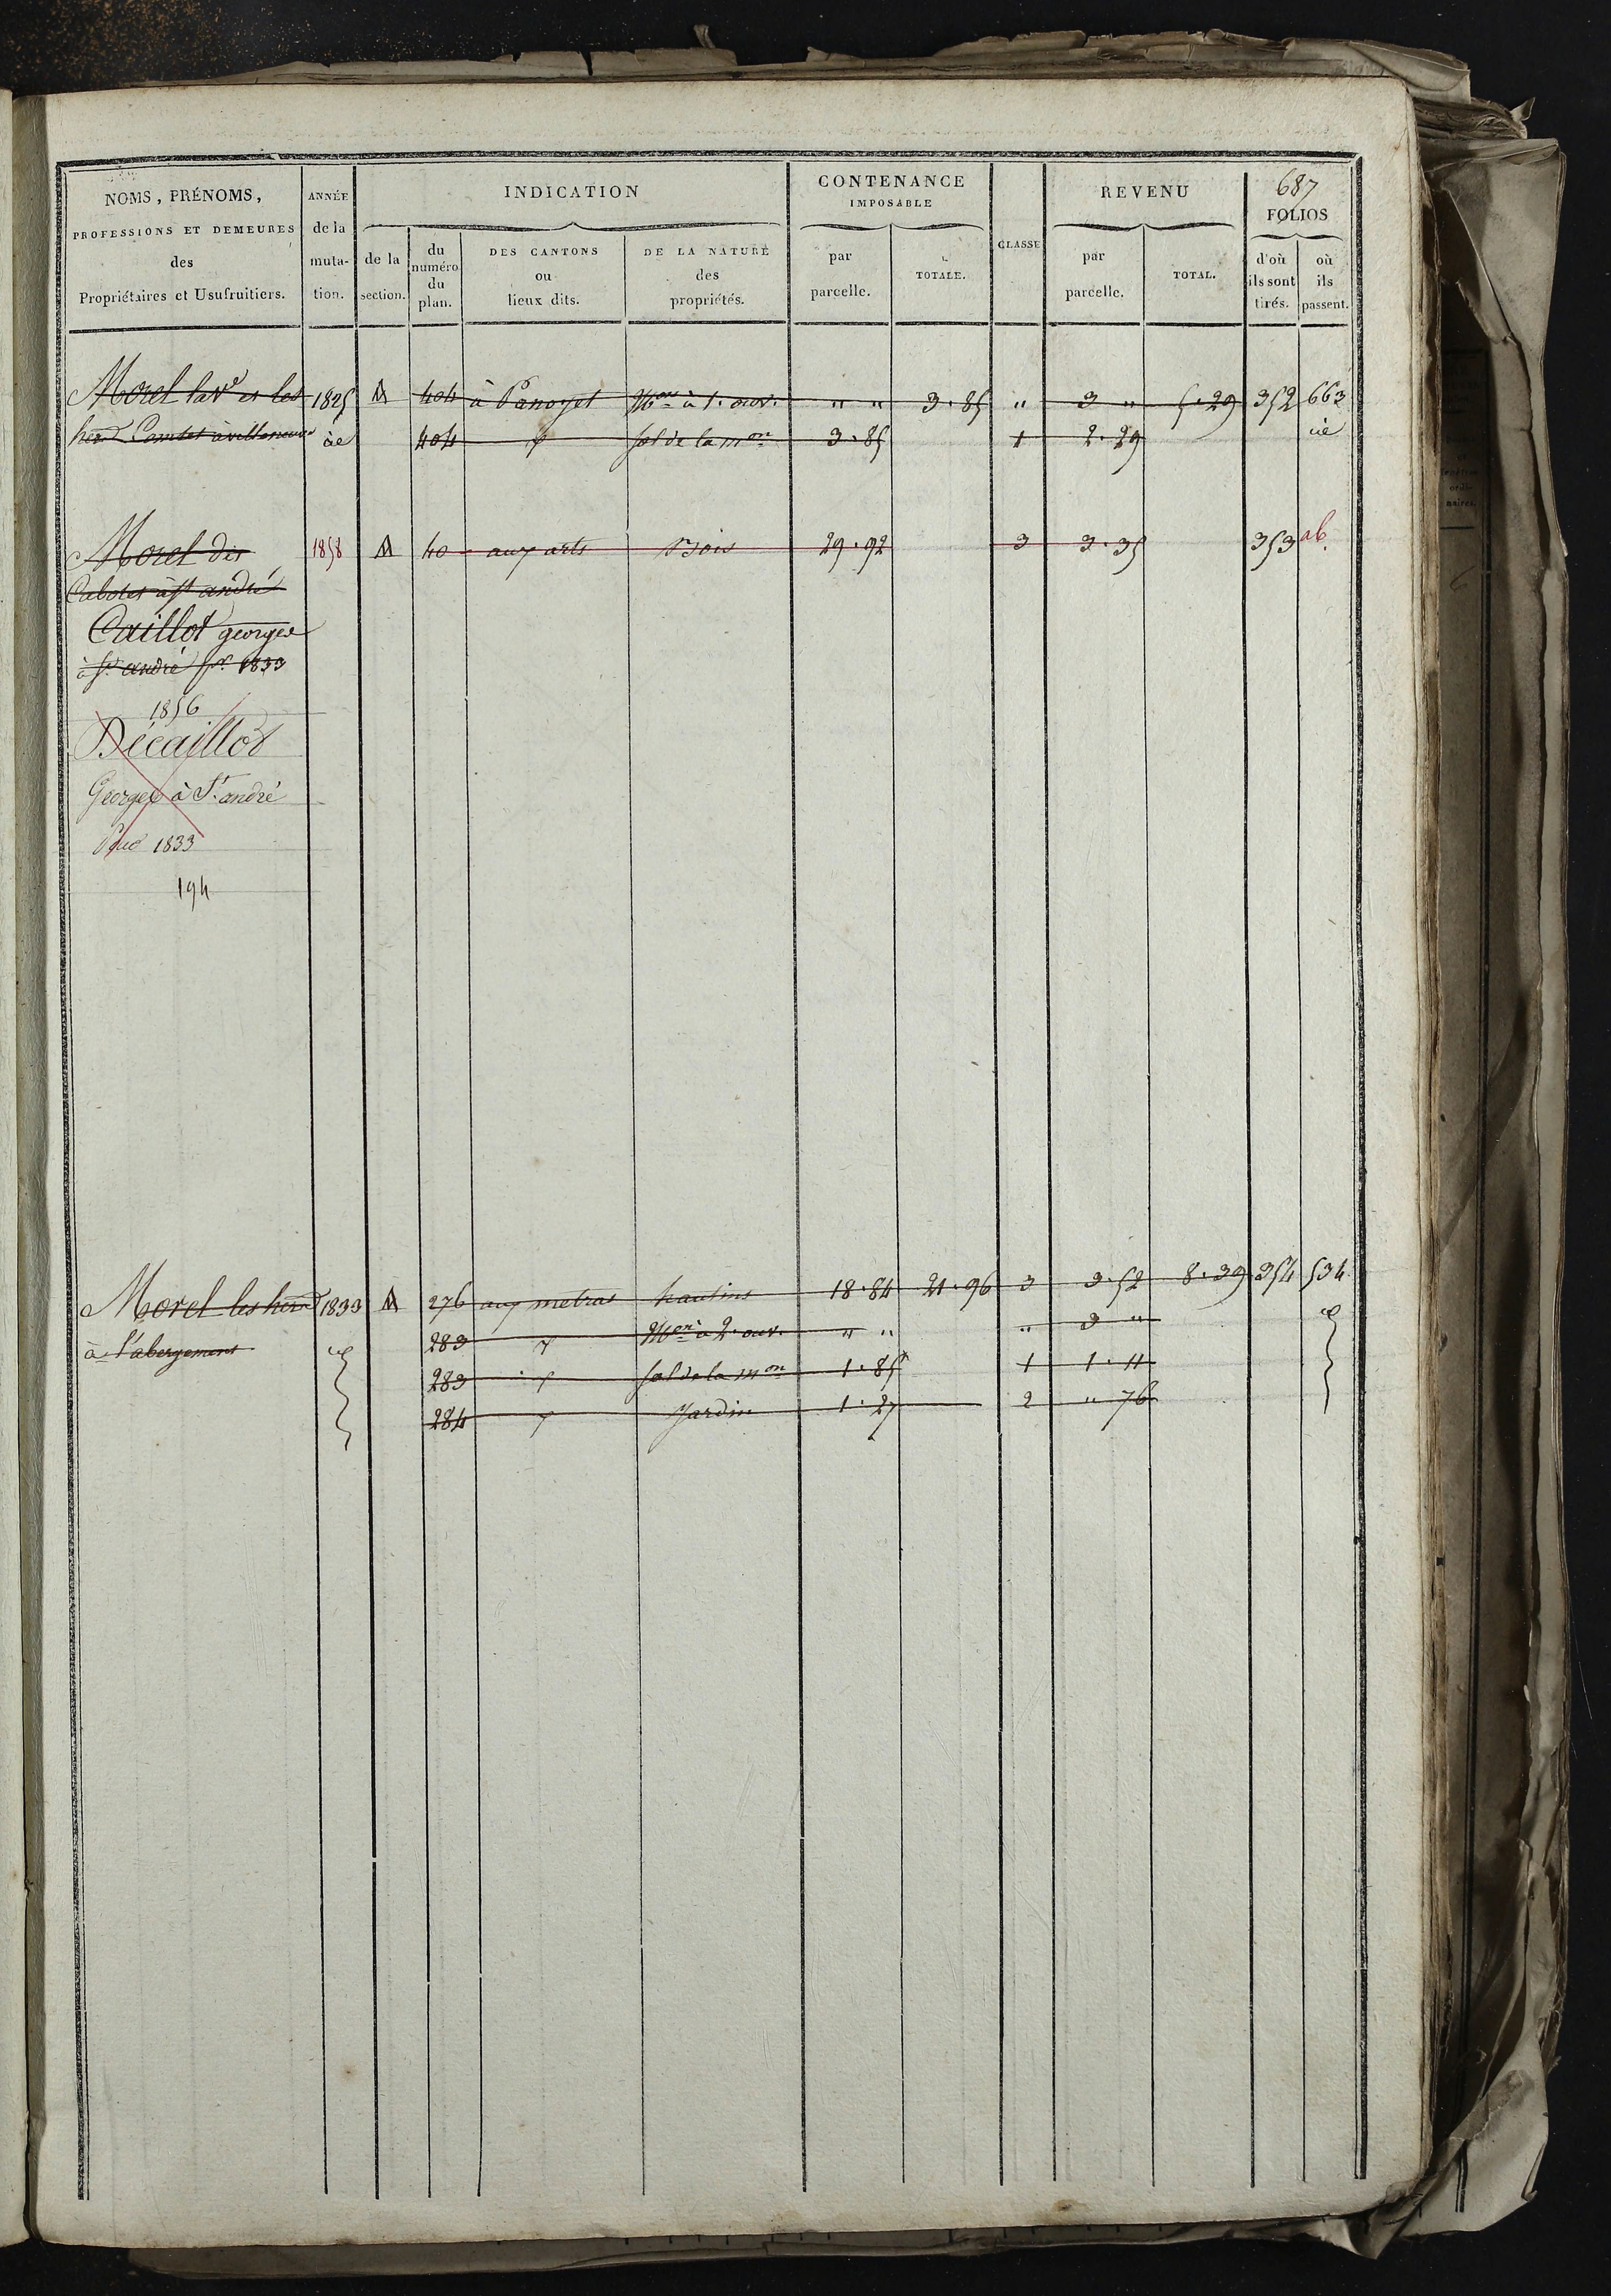 687
NOMS, PRÉNOMS, PROFESSIONS ET DEMEURES des Propriétaires et Usufruitiers.
ANNÉE de la muta- tion.
INDICATION
de la section.
du numéro du plan.
DES CANTONS ou lieux dits.
DE LA NATURE des propriétés.
CONTENANCE IMPOSABLE
par parcelle.
TOTALE.
CLASSE
REVENU
par parcelle.
TOTAL.
FOLIOS
d'où ils sont tirés.
où ils passent.
Morel la Ve et les 1825 A 404 à Panoyet Mon à 1. ouv. " " 3.85 " 3 " 5.29 352 663
404 sol de la mon 3.85 1 2.29
Morel dit 1858 A 40 aux arts Bois 29.92 3 3.35 353 ab.
à St andré
Caillot george
à St andré pr 1833
1856
Décaillot
George à St andré
Pour 1833
194
Morel les herrs 1833 A 276 aux metras hautins 18.84 21.96 3 3.52 8.39 354 534
à l'abergement 283 Mon à 2. ouv. " " " 3 "
283 sol de la mon 1.85 1 1.11
284 Jardin 1.27 2 " 76